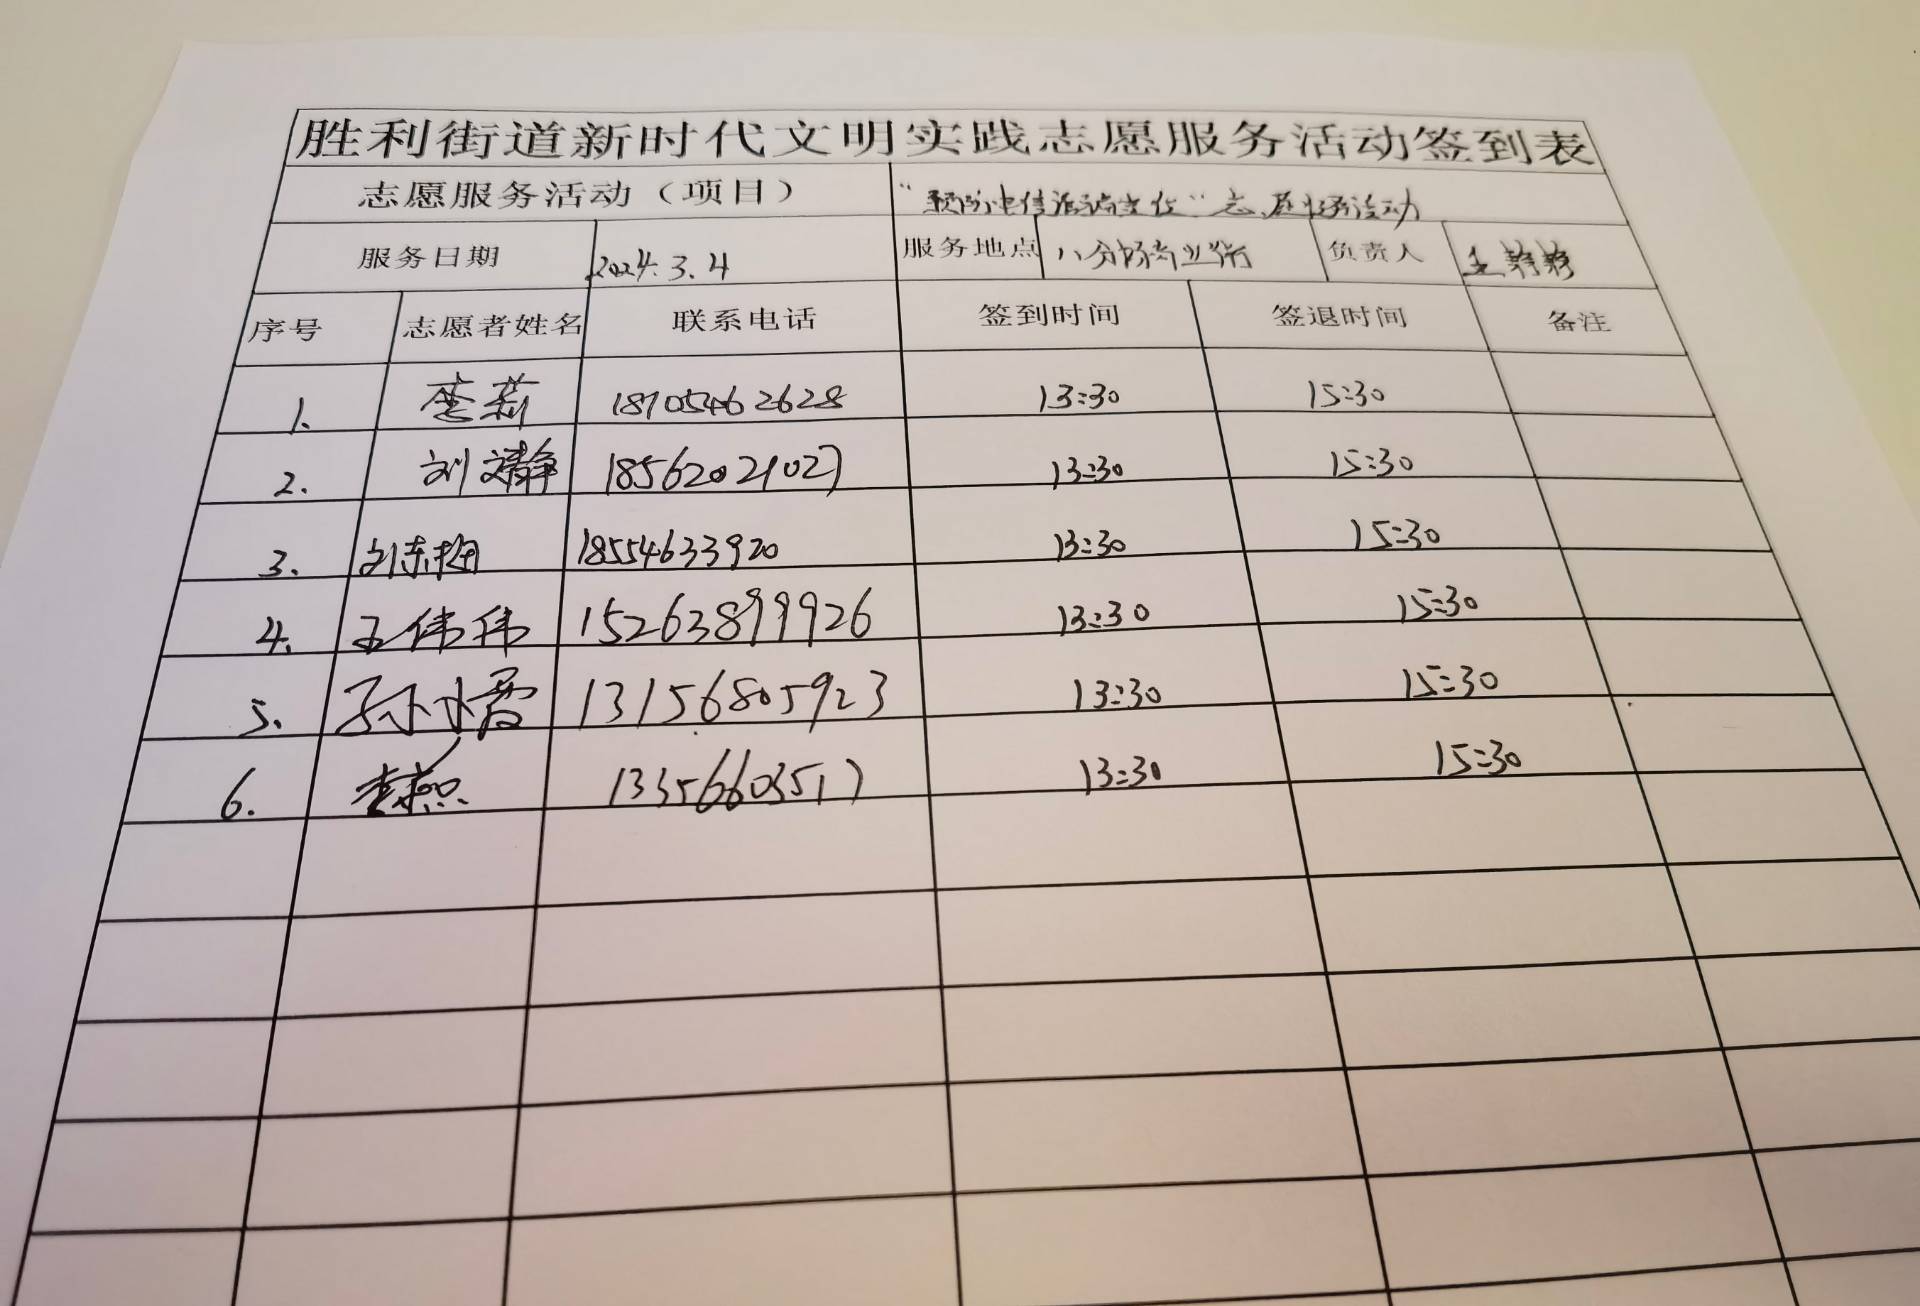 胜利街道新时代文明实践志愿服务活动签到表
志愿服务活动（项目） "预防电信诈骗宣传"志愿服务活动
服务日期 2024.3.4 服务地点 八分场商业街 负责人 王静静
序号 志愿者姓名 联系电话 签到时间 签退时间 备注
1. 李莉 18705462628 13:30 15:30
2. 刘文静 18562021027 13:30 15:30
3. 刘东梅 18554633920 13:30 15:30
4. 王伟伟 15263899926 13:30 15:30
5. 孙小霞 13156805923 13:30 15:30
6. 李燕 13356603517 13:30 15:30